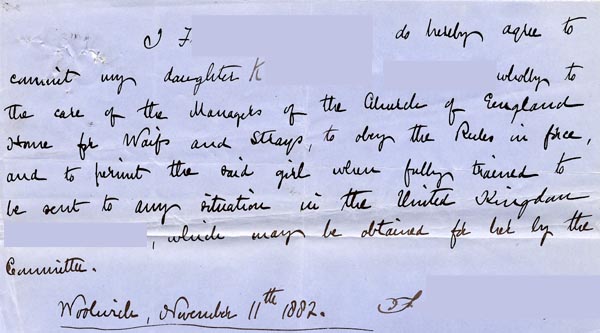 I F.
do hereby agree to
commit my daughter K
wholly to
the care of the Managers of the Church of England
Home for Waifs and Strays, to obey the Rules in force,
and to permit the said girl when fully trained to
be sent to any situation in the United Kingdom
, which may be obtained for her by the
Committee.
Woolwich, November 11th 1882. F